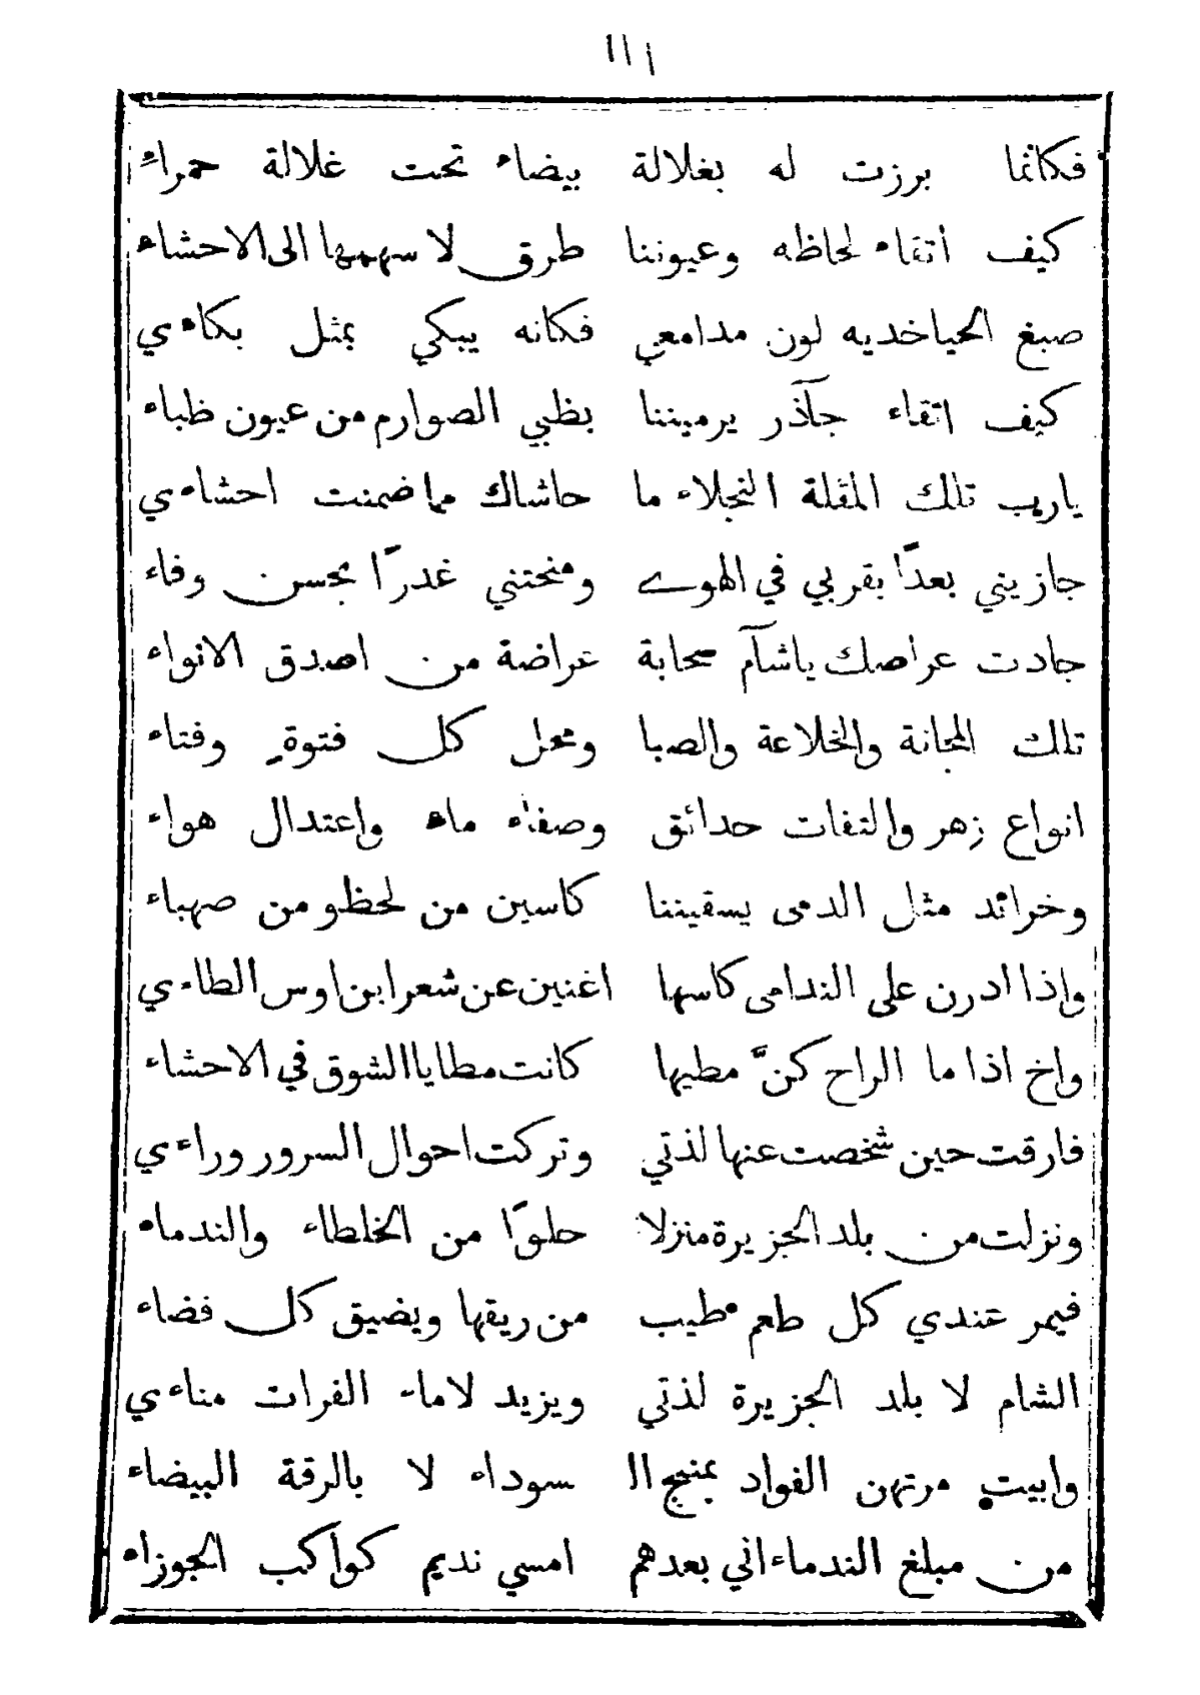 ١١١
فكانما برزت له بغلالة بيضاء تحت غلالة حمراء
كيف أتقاء لحاظه وعيوننا طرق لاسهمها الى الاحشاء
صبغ الحيا خديه لون مدامعي فكانه يبكي بمثل بكاءي
كيف اتقاء جآذر يرميننا بظبي الصوارم من عيون ظباء
يارب تلك المقلة النجلاء ما حاشاك مما ضمنت احشاءي
جازيني بعدًا بقربي في الهوے ومنحتني غدرًا بحسن وفاء
جادت عراصك ياشآم سحابة عراضة من اصدق الانواء
تلك المجانة والخلاعة والصبا ومحل كل فتوةٍ وفتاء
انواع زهر والتفات حدائق وصفاء ماء واعتدال هواء
وخرائد مثل الدمى يسقيننا كاسين من لحظ ومن صهباء
واذا ادرن على الندامى كاسها اغنين عن شعر ابن اوس الطاءي
واخ اذا ما الراح كنَّ مطيها كانت مطايا الشوق في الاحشاء
فارقت حين شخصت عنها لذتي وتركت احوال السرور وراءي
ونزلت من بلد الجزيرة منزلا حلوًا من الخلطاء والندماء
فيمر عندي كل طعم مطيب من ريقها ويضيق كل فضاء
الشام لا بلد الجزيرة لذتي ويزيد لاماء الفرات مناءي
وابيت مرتهن الفواد بمنبج ال سوداء لا بالرقة البيضاء
من مبلغ الندماء اني بعدهم امسي نديم كواكب الجوزاء